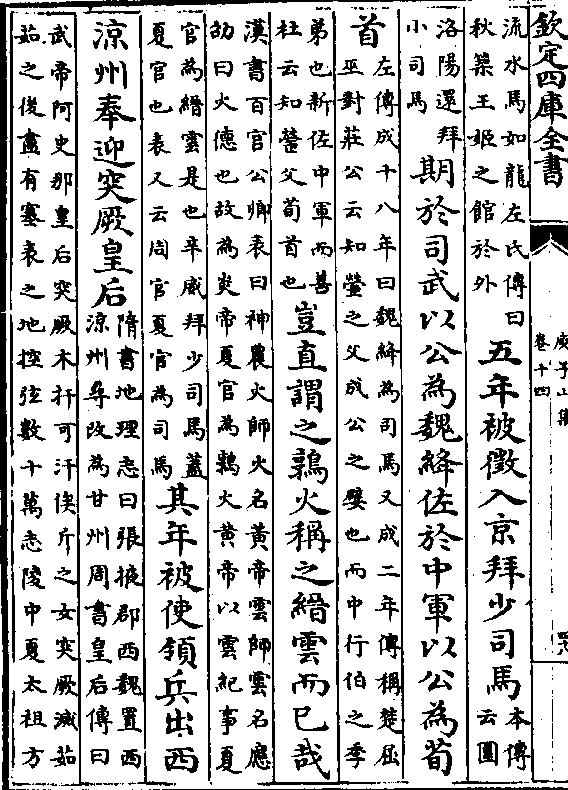 欽定四庫全書
庾子山集
卷十四
流水馬如龍左氏傳曰
秋築王姬之館於外
五年被徵入京拜少司馬
本傳
云圓
洛陽還拜
小司馬
期於司武以公為魏絳佐於中軍以公為荀
首
左傳成十八年曰魏絳為司馬又成二年傳稱楚屈
巫對莊公云知罃之父成公之嬖也而中行伯之季
弟也新佐中軍而善
杜云知罃父荀首也
豈直謂之鶉火稱之縉雲而已哉
漢書百官公卿表曰神農火師火名黃帝雲師雲名應
劭曰火德也故為炎帝夏官為鶉火黄帝以雲紀事夏
官為縉雲是也辛威拜少司馬蓋
夏官也表又云周官夏官為司馬
其年被使領兵出西
涼州奉迎突厥皇后
隋書地理志曰張掖郡西魏置西
涼州尋改為甘州周書皇后傳曰
武帝阿史那皇后突厥木扞可汗俟斤之女突厥滅茹
茹之後盡有塞表之地控弦數十萬志陵中夏太祖方